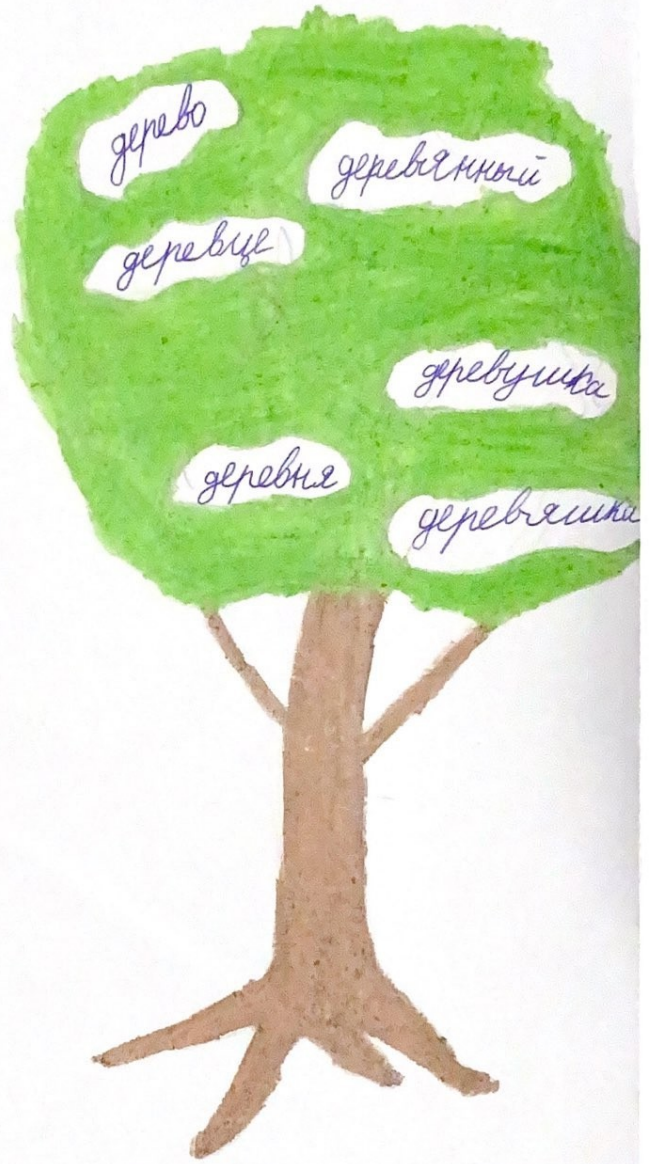 дерево
деревянный
деревце
деревушка
деревня
деревяшка